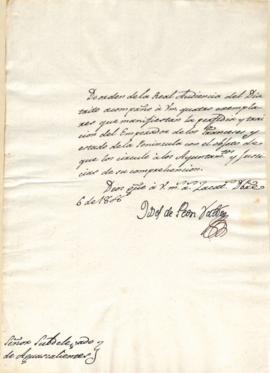 De orden de la Real Audiencia del Dis-
trito acompaño à Vm. quatro exempla-
res que manifiestan la perfidia y trai-
cion del Emperador de los Franceses, y
estado de la Peninsula con el objeto de
que los circule à los Ayuntamtos y Justi-
cias de su comprehension.
Dios gũe à Vm. ms. as.
6 de 1808
Señor Subdelegado
de Aguascalientes